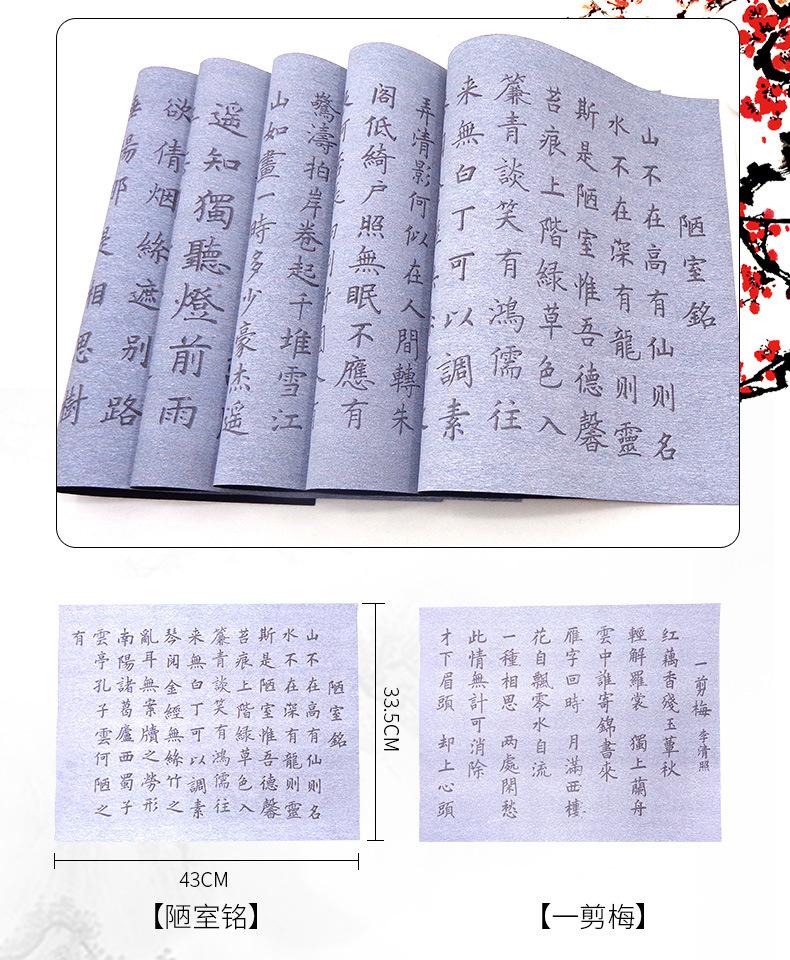 陋室銘
山不在高有仙則名
水不在深有龍則靈
斯是陋室惟吾德馨
苔痕上階綠草色入
簾青談笑有鴻儒往
来無白丁可以調素
弄清影何似在人間轉朱
阁低綺户照無眠不應有
驚濤拍岸卷起千堆雪江
山如畫一時多少豪杰遥
遥知獨聽燈前雨
欲倩烟絲遮别路
垂楊那是相思樹
陋室銘
山不在高有仙則名
水不在深有龍則靈
斯是陋室惟吾德馨
苔痕上階綠草色入
簾青談笑有鴻儒往
来無白丁可以調素
琴阅金經無絲竹之
亂耳無案牘之勞形
南陽諸葛廬西蜀子
雲亭孔子雲何陋之
有
33.5CM
43CM
【陋室铭】
一剪梅 李清照
紅藕香殘玉簟秋
輕解羅裳 獨上蘭舟
雲中誰寄錦書來
雁字回時 月滿西樓
花自飄零水自流
一種相思 两處閑愁
此情無計可消除
才下眉頭 却上心頭
【一剪梅】